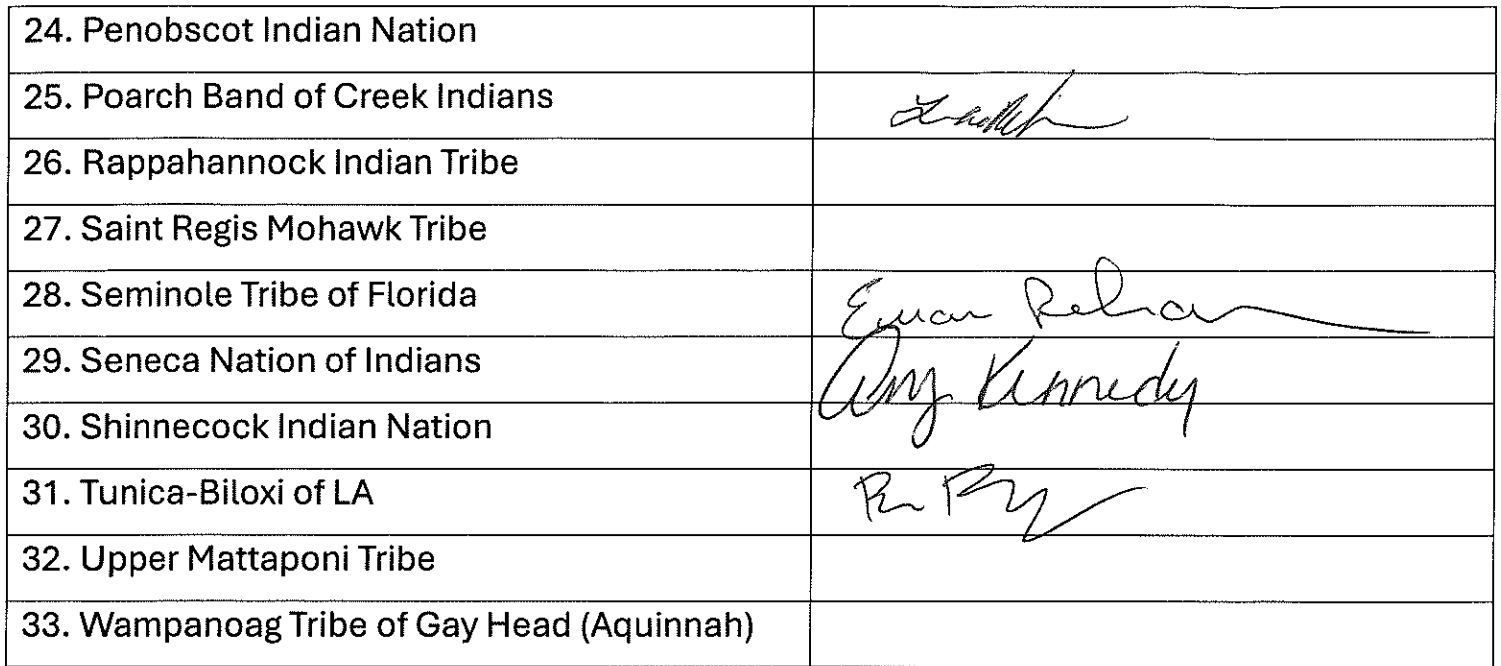 24. Penobscot Indian Nation
25. Poarch Band of Creek Indians
26. Rappahannock Indian Tribe
27. Saint Regis Mohawk Tribe
28. Seminole Tribe of Florida
29. Seneca Nation of Indians
Amy Kennedy
30. Shinnecock Indian Nation
31. Tunica-Biloxi of LA
32. Upper Mattaponi Tribe
33. Wampanoag Tribe of Gay Head (Aquinnah)